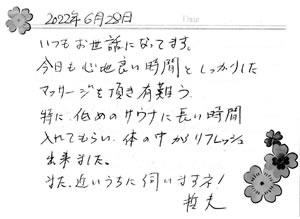 2022年6月28日
Date
いつもお世話になってます。
今日も心地良い時間としっかりした
マッサージを頂き有難う。
特に、低めのサウナに長い時間
入れてもらい、体の中からリフレッシュ
出来ました。
また、近いうちに伺いますネ!
哲夫